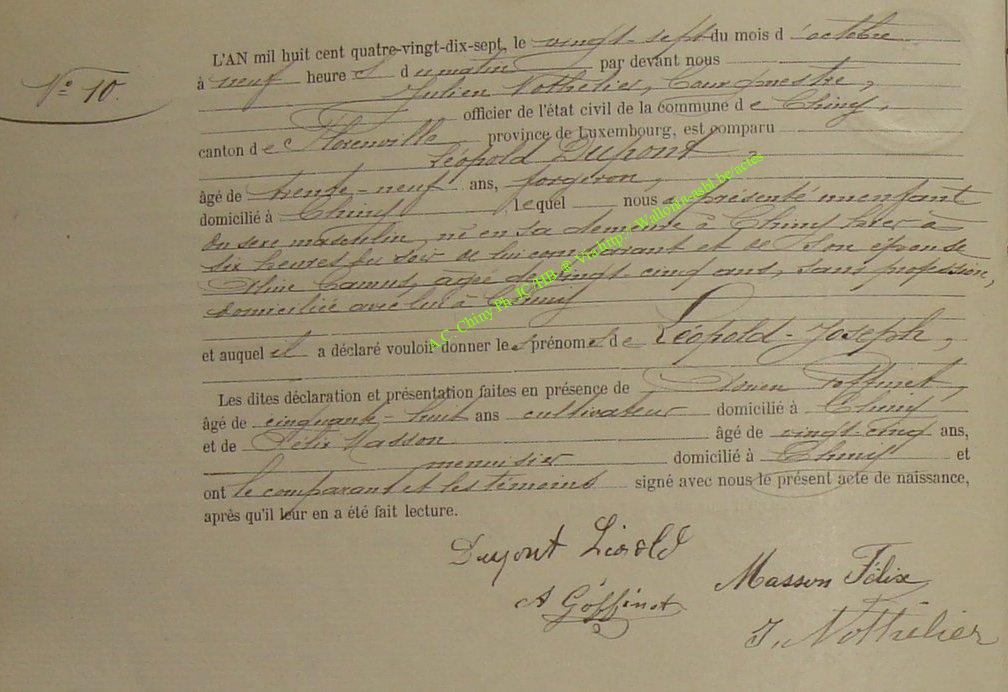 N° 10.
L'AN mil huit cent quatre-vingt-dix-sept, le vingt-sept du mois d'octobre
à neuf heures du matin par devant nous
Julien Nothelier, Bourgmestre,
officier de l'état civil de la commune de Chiny,
canton de Florenville province de Luxembourg, est comparu
Léopold Dupont,
âgé de trente-neuf ans, forgeron,
domicilié à Chiny lequel nous a présenté un enfant
du sexe masculin, né en sa demeure à Chiny hier à
six heures du soir de lui comparant et de son épouse
Camus, âgée de vingt cinq ans, sans profession,
domiciliée avec lui à Chiny
et auquel il a déclaré vouloir donner les prénoms de Léopold-Joseph,
Les dites déclaration et présentation faites en présence de Goffinet,
âgé de cinquante-huit ans cultivateur domicilié à Chiny
et de Félix Masson âgé de vingt-cinq ans,
menuisier domicilié à Chiny et
ont le comparant et les témoins signé avec nous le présent acte de naissance,
après qu'il leur en a été fait lecture.
Dupont Léopold
A Goffinet
Masson Félix
J. Nothelier
A.C. Chiny Ph JC/HB @ Via http://Wallonia-asbl.be/actes